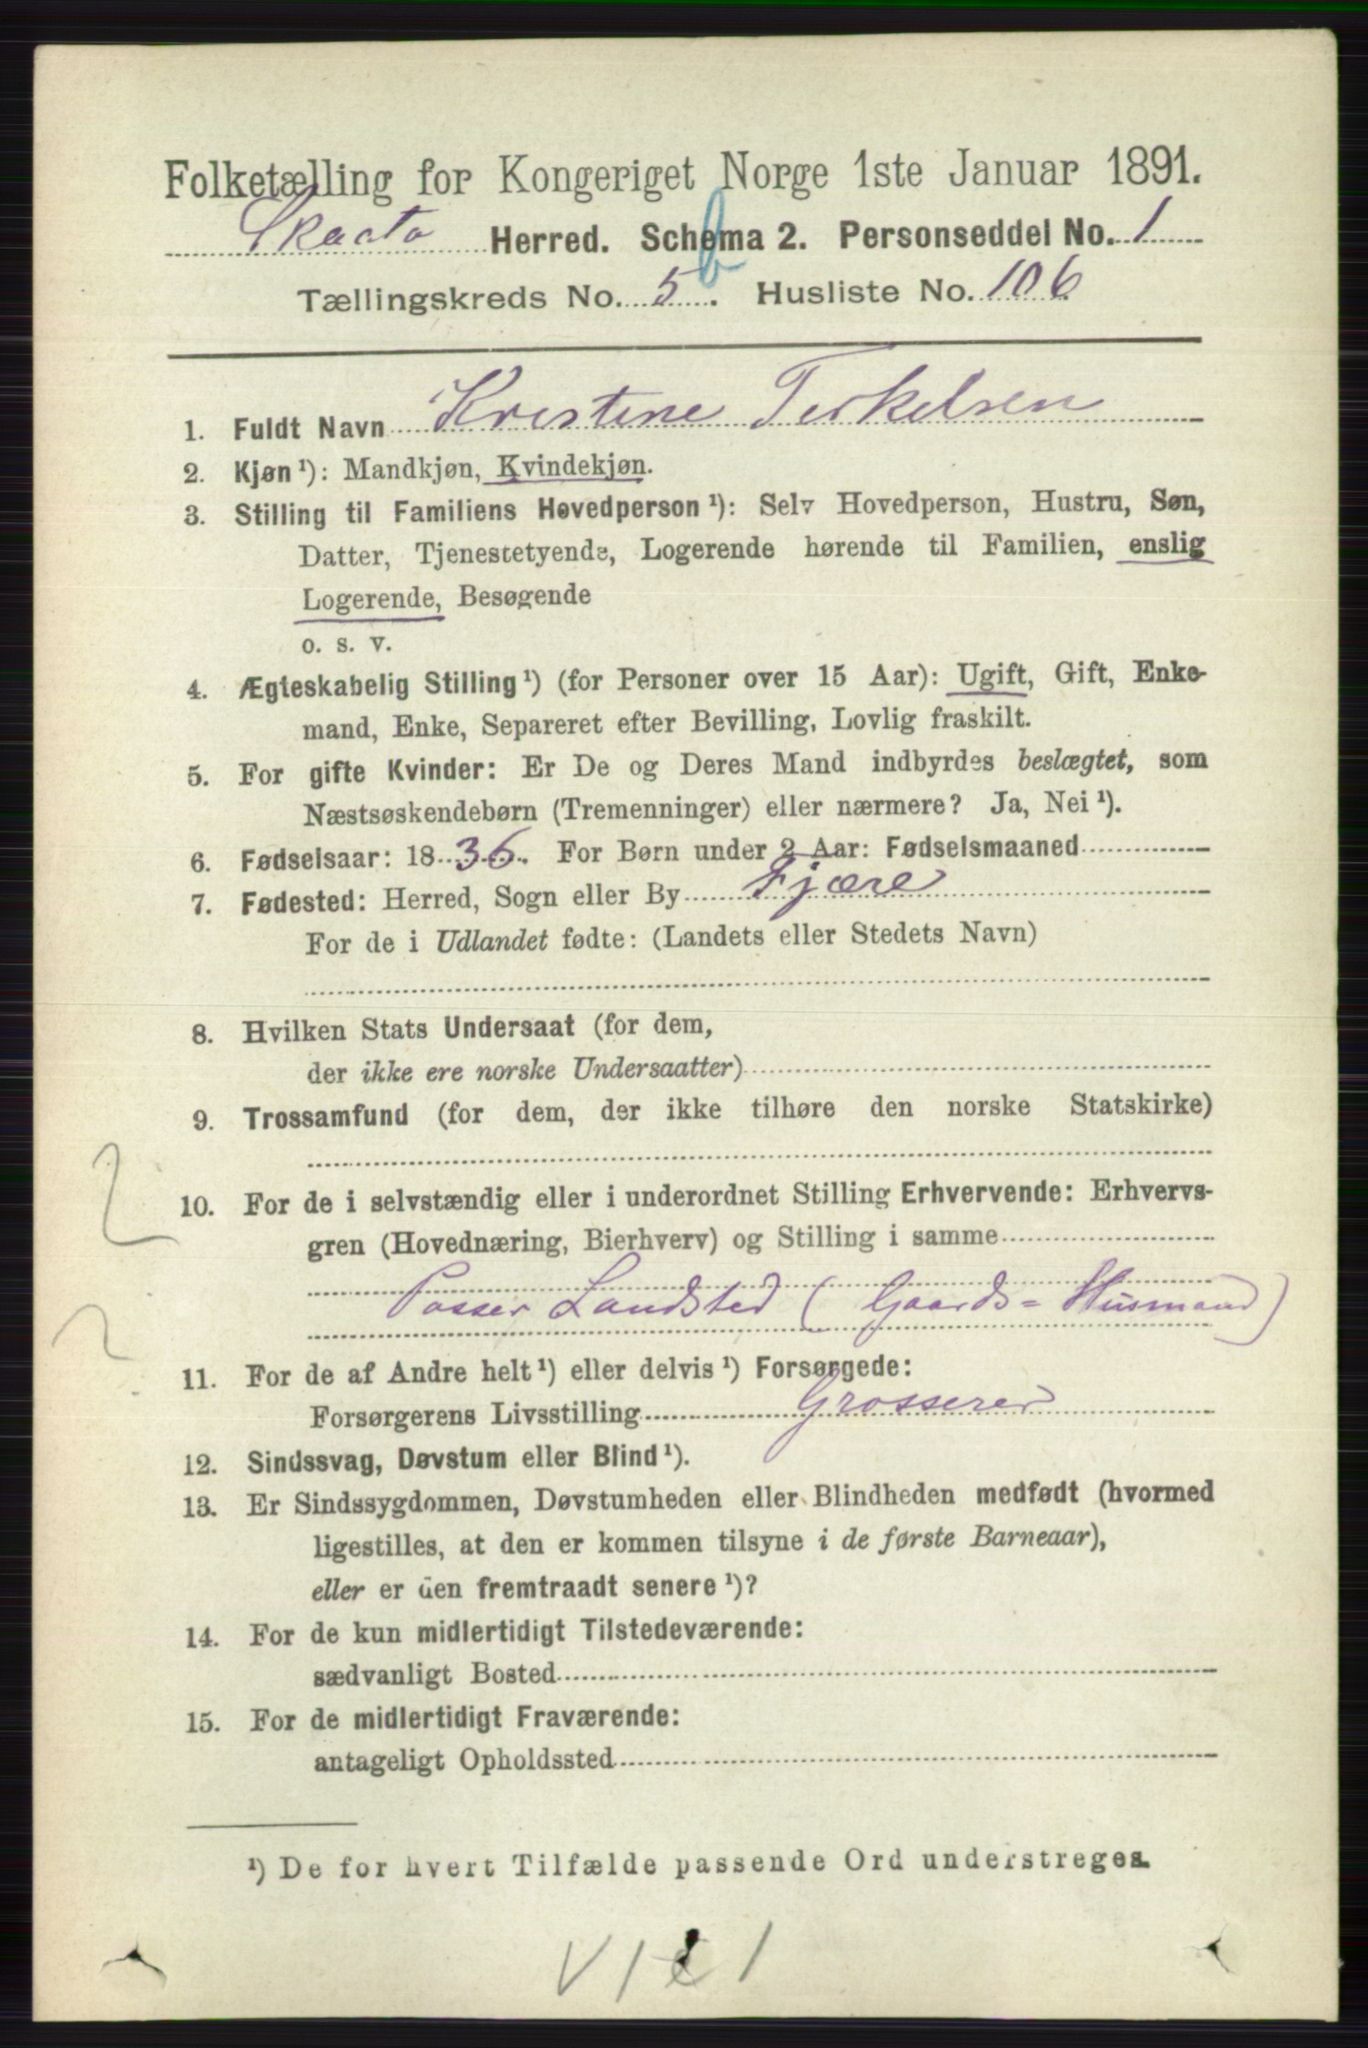 Folketælling for Kongeriget Norge 1ste Januar 1891.
Skaatø Herred. Schema 2. Personseddel No. 1
Tællingskreds No. 5 b. Husliste No. 106
1. Fuldt Navn Kristine Terkelsen
2. Kjøn ¹): Mandkjøn, Kvindekjøn.
3. Stilling til Familiens Hovedperson ¹): Selv Hovedperson, Hustru, Søn,
Datter, Tjenestetyende, Logerende hørende til Familien, enslig
Logerende, Besøgende
o. s. v.
4. Ægteskabelig Stilling ¹) (for Personer over 15 Aar): Ugift, Gift, Enke-
mand, Enke, Separeret efter Bevilling, Lovlig fraskilt.
5. For gifte Kvinder: Er De og Deres Mand indbyrdes beslægtet, som
Næstsøskendebørn (Tremenninger) eller nærmere? Ja, Nei ¹).
6. Fødselsaar: 1836. For Børn under 2 Aar: Fødselsmaaned
7. Fødested: Herred, Sogn eller By Fjære
For de i Udlandet fødte: (Landets eller Stedets Navn)
8. Hvilken Stats Undersaat (for dem,
der ikke ere norske Undersaatter)
9. Trossamfund (for dem, der ikke tilhøre den norske Statskirke)
10. For de i selvstændig eller i underordnet Stilling Erhvervende: Erhvervs-
gren (Hovednæring, Bierhverv) og Stilling i samme
Passer Landsted (Gaards=Husmand)
11. For de af Andre helt ¹) eller delvis ¹) Forsørgede:
Forsørgerens Livsstilling Grosserer
12. Sindssvag, Døvstum eller Blind ¹).
13. Er Sindssygdommen, Døvstumheden eller Blindheden medfødt (hvormed
ligestilles, at den er kommen tilsyne i de første Barneaar),
eller er den fremtraadt senere ¹)?
14. For de kun midlertidigt Tilstedeværende:
sædvanligt Bosted
15. For de midlertidigt Fraværende:
antageligt Opholdssted
¹) De for hvert Tilfælde passende Ord understreges.